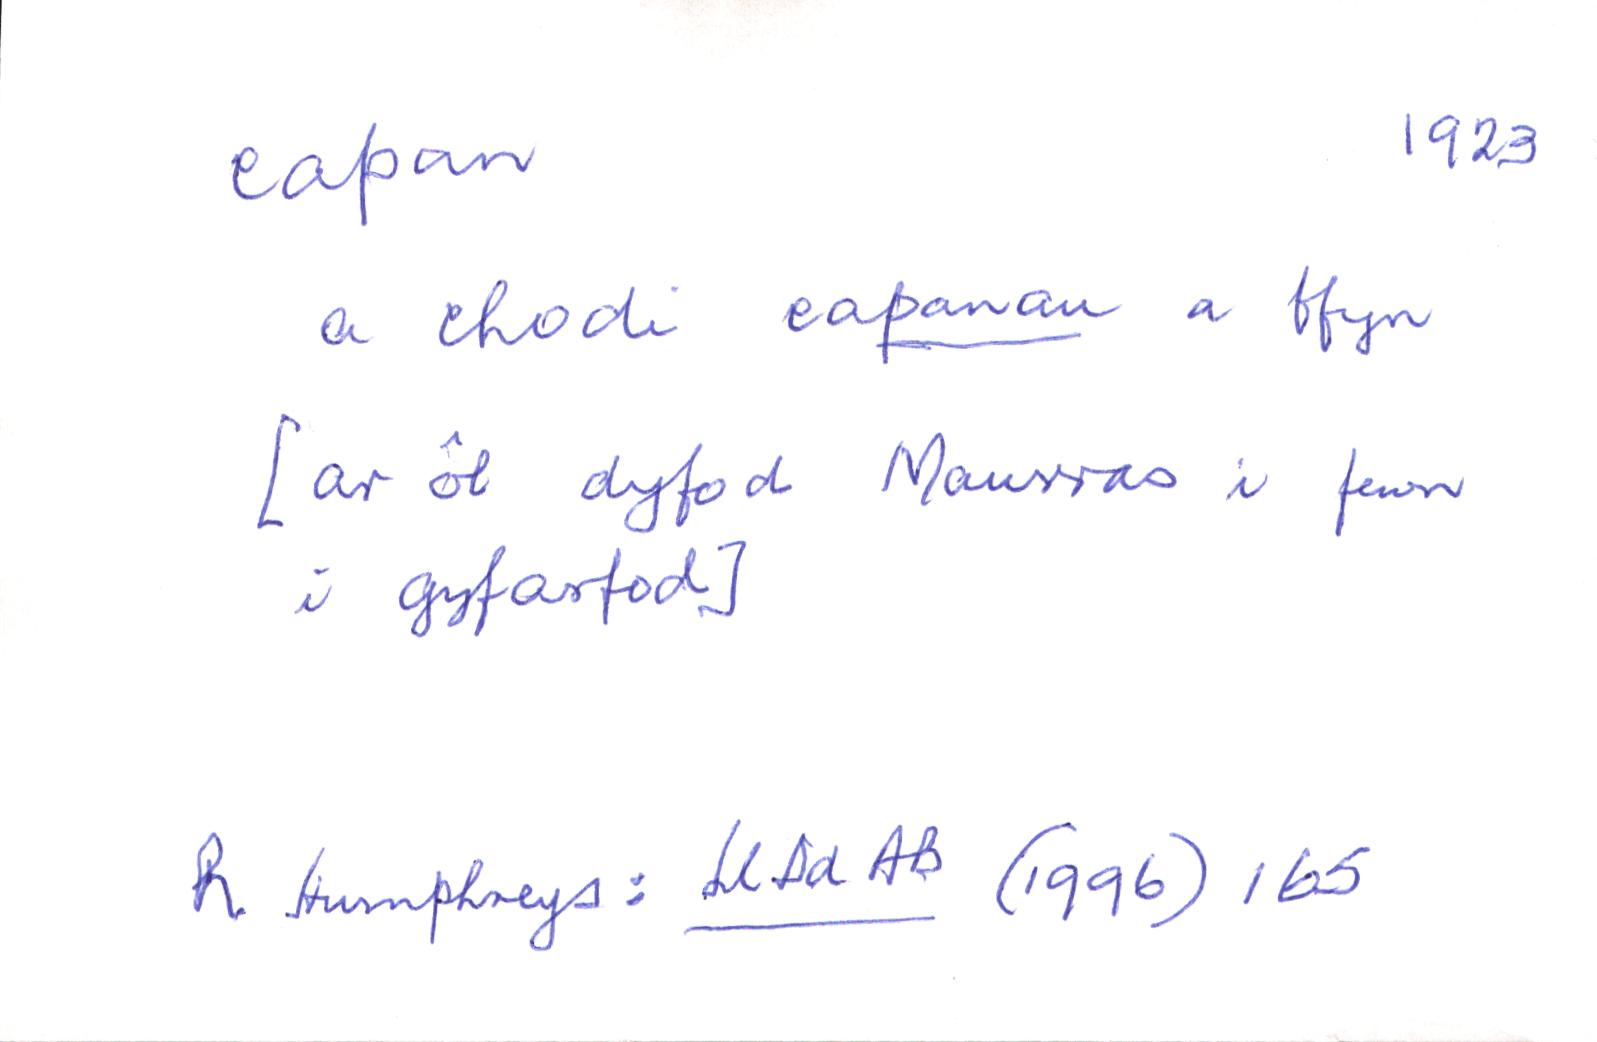 capan 1923
a chodi capanau a ffyn
[ar ôl dyfod Maurras i fewn
i gyfarfod]
R. Humphreys: Ll Dd AB (1996) 165